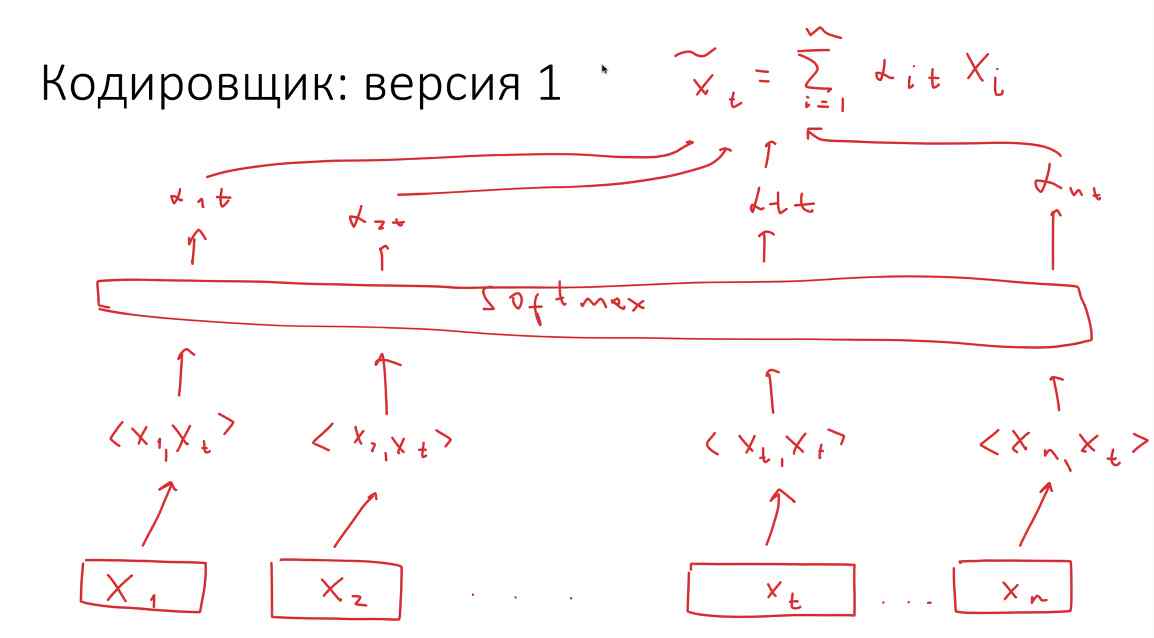 Кодировщик: версия 1
x̃_t = ∑_{i=1}^{n} α_{it} x_i
α_{1t} α_{2t} α_{tt} α_{nt}
Softmax
<x_1, x_t> <x_2, x_t> <x_t, x_t> <x_n, x_t>
x_1 x_2 . . . x_t ... x_n